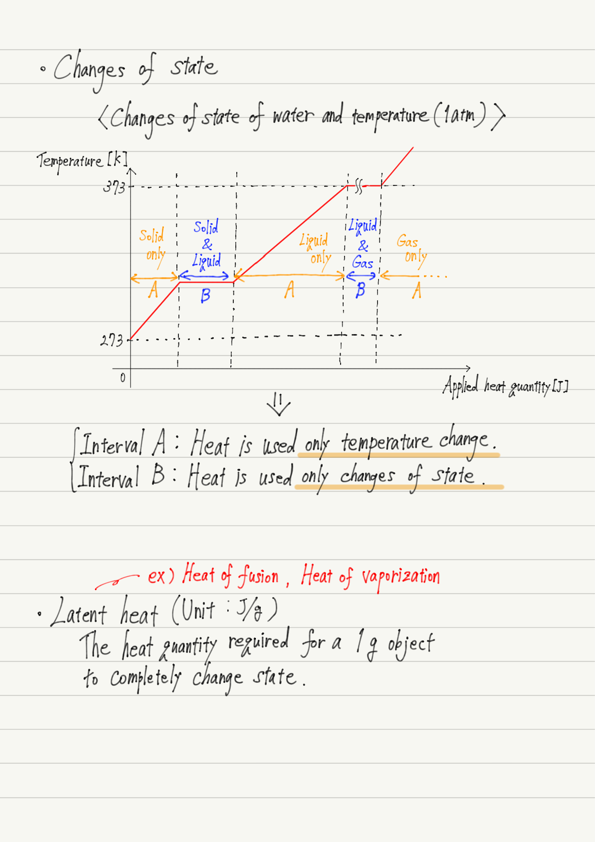 • Changes of state
〈Changes of state of water and temperature (1atm)〉
Temperature [k]
373
Solid only
Solid & Liquid
Liquid only
Liquid & Gas
Gas only
A
B
A
B
A
273
0
Applied heat quantity [J]
⇓
Interval A : Heat is used only temperature change.
Interval B : Heat is used only changes of state.
ex) Heat of fusion, Heat of vaporization
• Latent heat (Unit : J/g)
The heat quantity required for a 1g object
to completely change state.